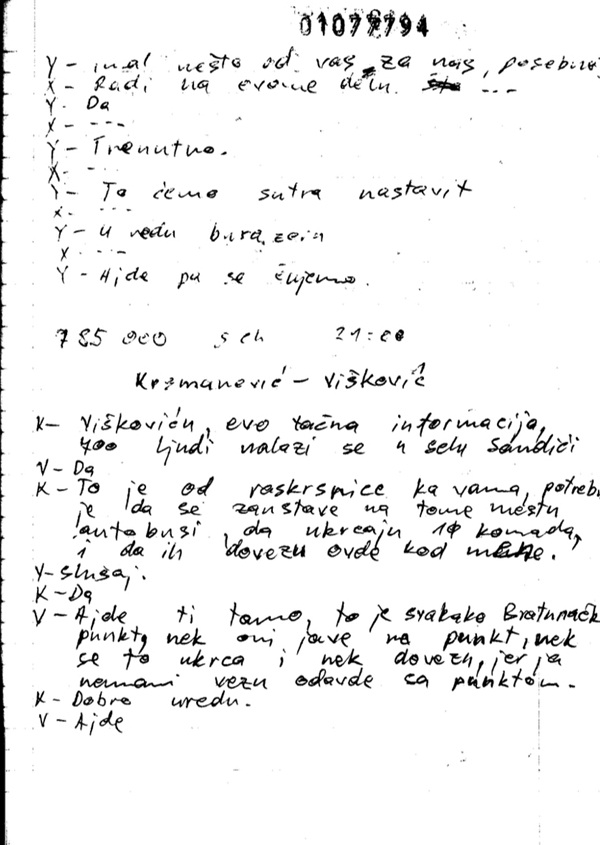 01077794
Y - imal nešto od vas za nas, posebno,
X - Radi na ovome delu. ---
Y - Da
X - ---
Y - Trenutno.
X - ---
Y - To ćemo sutra nastavit
X - ---
Y - U redu burazeru
X - ---
Y - Ajde pa se čujemo.
785 000 5 ch 21:00
Krsmanović - Višković
K - Viškoviću, evo tačna informacija,
400 ljudi nalazi se u selu Sandići
V - Da
K - To je od raskrsnice ka vama, potrebn
je da se zaustave na tome mestu
autobusi, da ukrcaju komada,
i da ih dovezu ovde kod mene.
V - Slušaj.
K - Da
V - Ajde ti tamo, to je svakako Bratunačk
punkt, nek oni jave na punkt, nek
se to ukrca i nek dovezu, jer ja
nemam vezu odavde sa punktom.
K - Dobro uredu.
V - Ajde